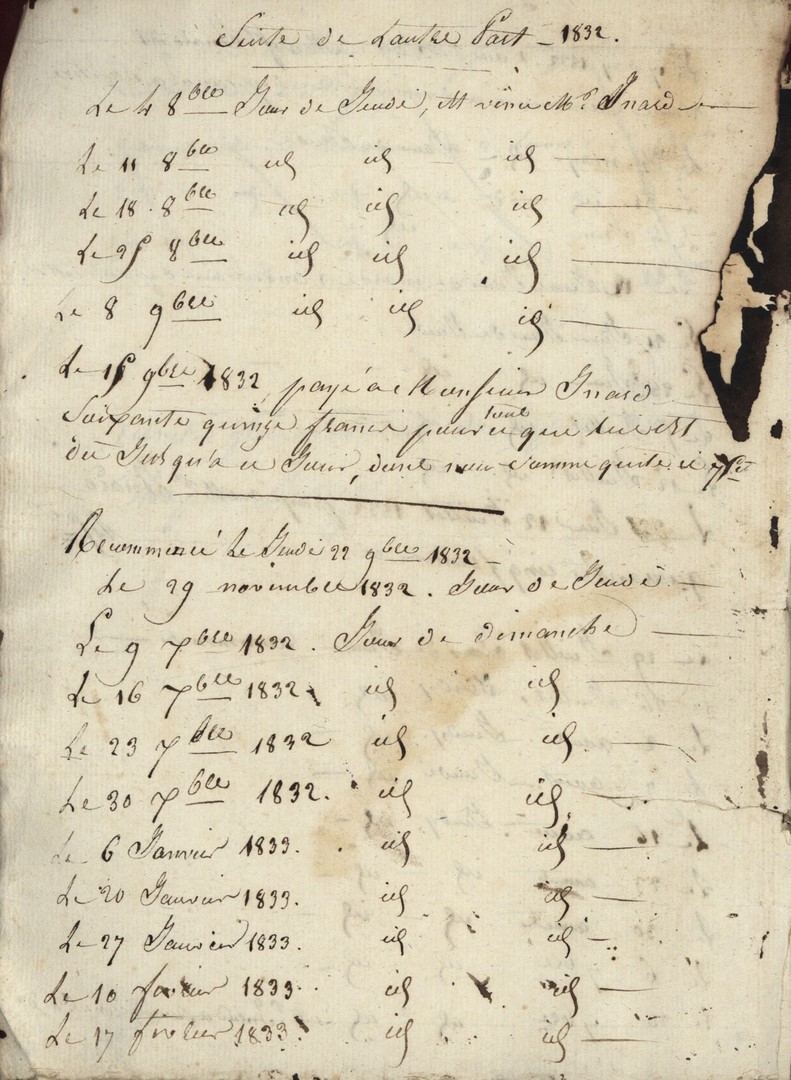 Suite de Lautre Part – 1832.
Le 4 8bre Jour de Jeudi, est venu Mr. Inard
Le 11 8bre id id id
Le 18. 8bre id id id
Le 25 8bre id id id
Le 8 9bre id id id
Le 15 9bre 1832, payé a Monsieur Inard
Soixante quinze francs pour tout ce que lui est
dû Jusqu'à ce Jour, dont nous sommes quite ci 75 f
Recommencé Le Jeudi 22 9bre 1832 –
Le 29 novembre 1832. Jour de Jeudi –
Le 9 Xbre 1832. Jour de dimanche
Le 16 Xbre 1832. id id
Le 23 Xbre 1832 id id
Le 30 Xbre 1832. id id
Le 6 Janvier 1833. id id
Le 20 Janvier 1833. id id
Le 27 Janvier 1833. id id
Le 10 février 1833. id id
Le 17 février 1833. id id